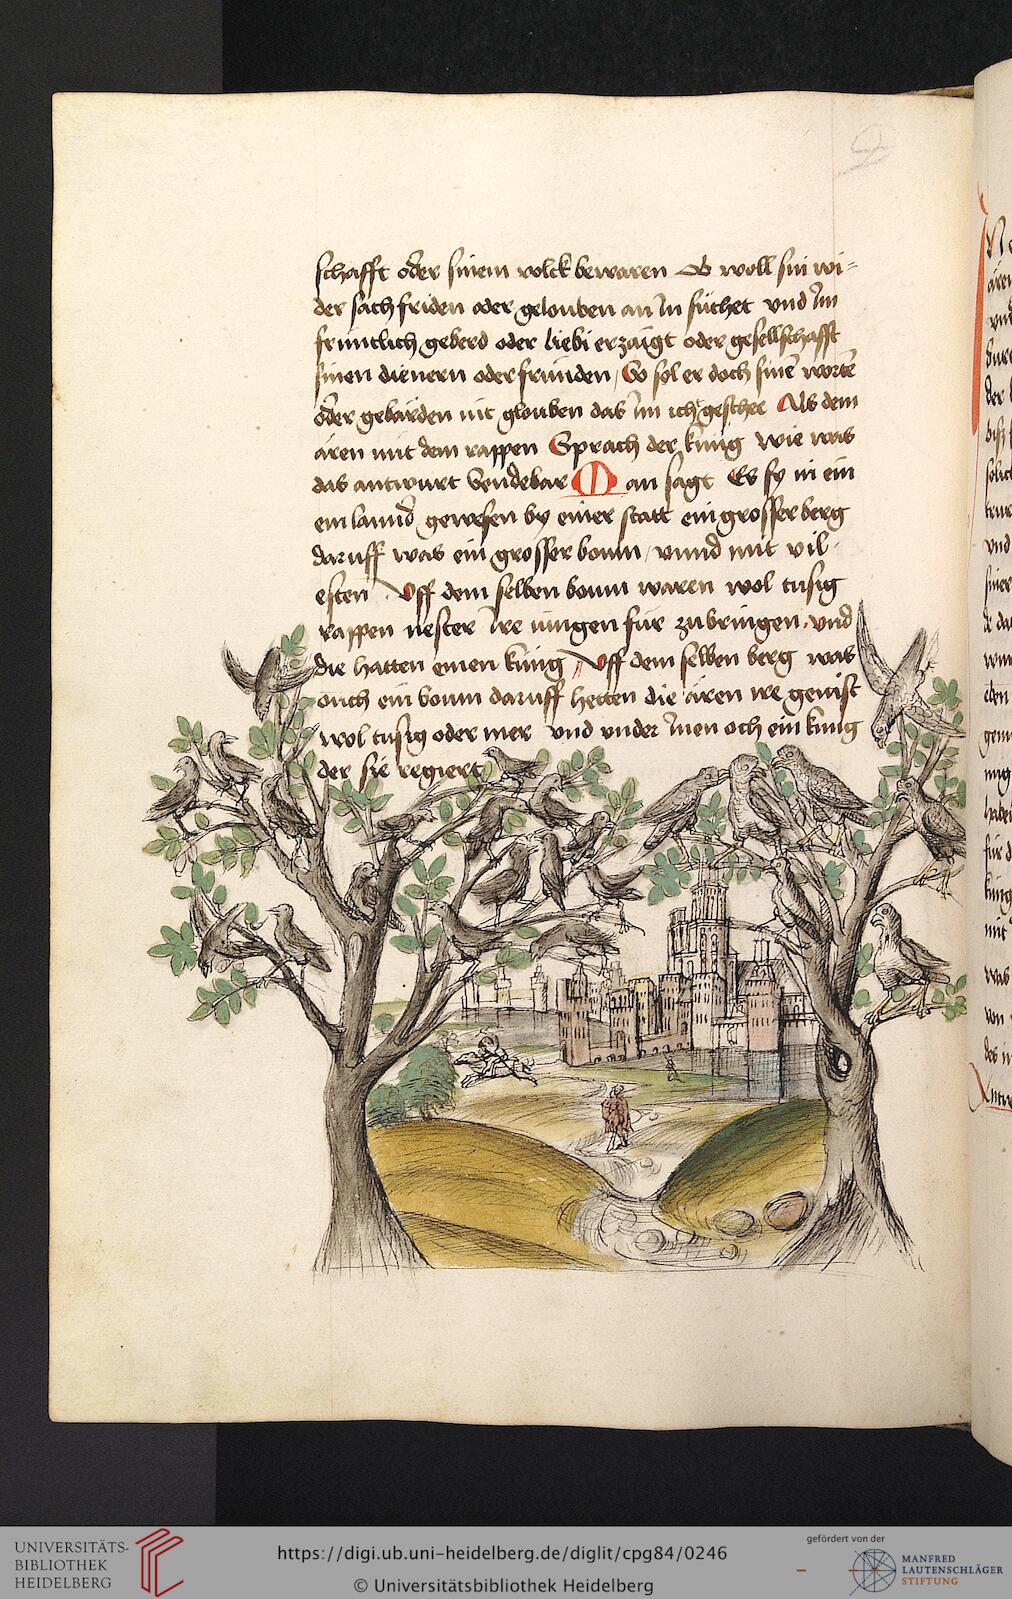 schafft oder sinem volck bewaren Ob woll sin wi=
der sach friden oder gelouben an im suͦchet vnd im
fruntlich geberd oder liebi erzaigt oder gesellschafft
sinen dienern oder frunden / So sol er doch sinē wortē
oder gebärden nit glouben das im icht gescheе Als dem
aren mit dem rappen Sprach der kunig wie was
das antwurt Sendebar Man sagt Es sy in ein
em lannd gewesen by einer statt ein grosser berg
daruff was ein grosser boum / vnnd mit vil
esten Vff dem selben boum waren wol tusig
rappen nester Ire iungen fur zu bringen vnd
die hatten einen kung Vff dem selben berg was
ouch ein boum daruff hetten die aren ire genist
wol tusig oder mer vnd vnder inen och ein kung
der sie regiert
UNIVERSITÄTS-
BIBLIOTHEK
HEIDELBERG
https://digi.ub.uni-heidelberg.de/diglit/cpg84/0246
© Universitätsbibliothek Heidelberg
gefördert von der
MANFRED
LAUTENSCHLÄGER
STIFTUNG